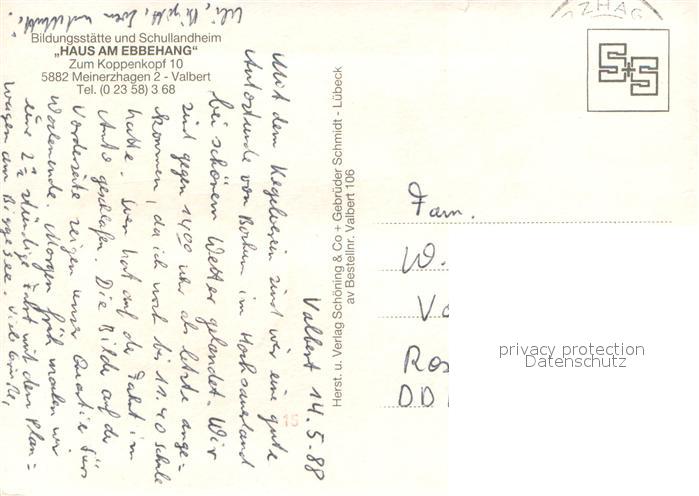 Bildungsstätte und Schullandheim
„HAUS AM EBBEHANG“
Zum Koppenkopf 10
5882 Meinerzhagen 2 - Valbert
Tel. (0 23 58) 3 68
ZHAG
S+S
Herst. u. Verlag Schöning & Co + Gebrüder Schmidt - Lübeck
av Bestellnr. Valbert 106
Valbert 14.5.88
Mit dem Kegelverein sind wir eine gute
Autostunde von Bochum im Hochsauerland
bei schönem Wetter gelandet. Wir
sind gegen 14.00 Uhr als letzte ange=
kommen, da ich noch bis 11.40 Schule
hatte. Sven hat auf der Fahrt im
Auto geschlafen. Die Bilder auf der
Vorderseite zeigen unser Quartier fürs
Wochenende. Morgen früh machen wir
eine 2½ stündige Fahrt mit dem Plan=
wagen am Biggesee. Viele Grüße,
Uli, Brigitte, Sven und
Fam.
W.
Vo
Ros
DD
15
privacy protection
Datenschutz